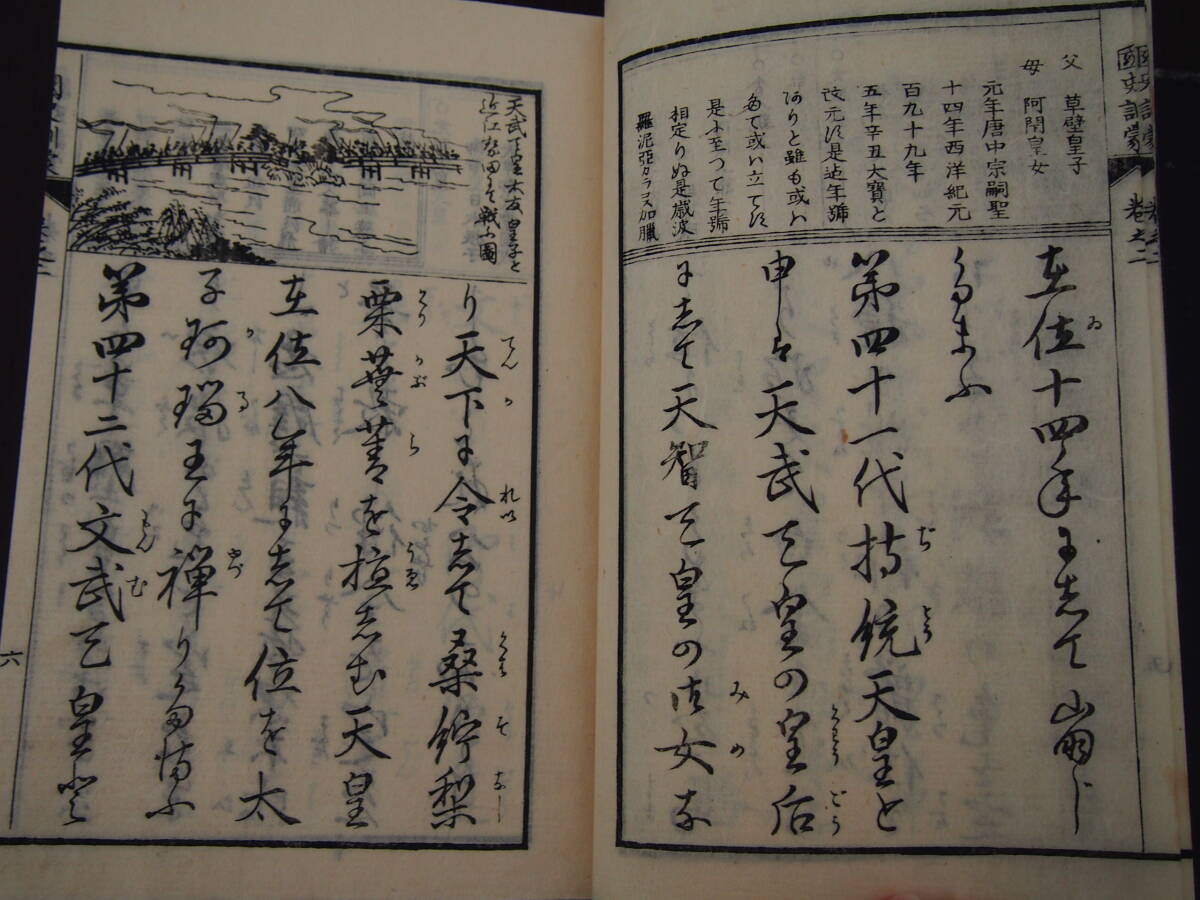 國史訓蒙 卷之二
父 草壁皇子
母 阿閇皇女
元年唐中宗嗣聖
十四年西洋紀元
百九十九年
五年辛丑大寶と
改元す是迠年號
ありと雖も或ハ
名て或ハ立てす
是に至つて年號
相定りぬ是歳波
羅泥亞カラコヌ加臘
在位十四年にして崩じ
たまふ
第四十一代持統天皇と
申は天武天皇の皇后
にして天智天皇の御女な
天武天皇大友皇子と
近江勢田にて戦ふ圖
り天下に令して桑紵梨
栗蕪菁を植しむ天皇
在位八年にして位を太
子珂瑠王に禅りたまふ
第四十二代文武天皇と
六